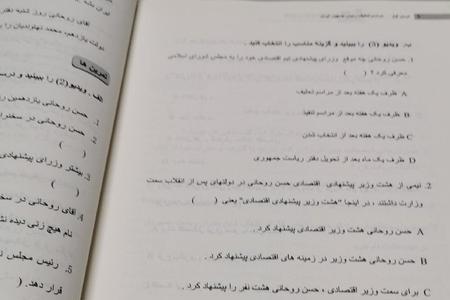 ب. ویدیو (5) را ببینید و گزینه مناسب را انتخاب کنید .
1. حسن روحانی چه موقع وزرای پیشنهادی تیم اقتصادی خود را به مجلس شورای اسلامی
معرفی کرد ؟ ( )
A ظرف یک هفته بعد از مراسم تحلیف
B ظرف یک هفته بعد از مراسم تنفیذ
C ظرف یک هفته بعد از انتخاب شدن
D ظرف یک ماه بعد از تحویل دفتر ریاست جمهوری
2. نیمی از هشت وزیر پیشنهادی اقتصادی حسن روحانی در دولتهای پس از انقلاب سمت
وزارت داشتند ، در اینجا "هشت وزیر پیشنهادی اقتصادی" یعنی ( )
A حسن روحانی هشت وزیر اقتصادی پیشنهاد کرد .
B حسن روحانی هشت وزیر در زمینه های اقتصادی پیشنهاد کرد .
C برای سمت وزیر اقتصادی ، حسن روحانی هشت نفر را پیشنهاد کرد .
آقای روحانی روز شنبه دفتر
دولت یازدهم، محمد نهاوندیان را
تمرین ها
الف. ویدیو (2) را ببینید و درست
1. حسن روحانی یازدهمین ر
2. حسن روحانی در سخنرا
( )
3. بیشتر وزرای پیشنهادی
( )
4. آقای روحانی در سخ
نام هیچ زنی دیده نش
5. رئیس مجلس
قرار دهد. (